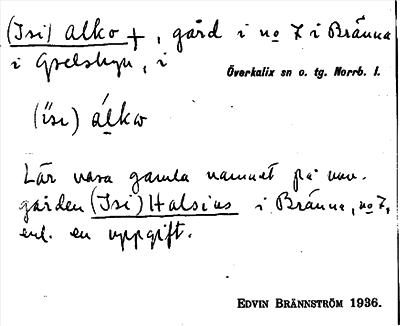 (Isi) alko +, gård i no 7 i Bränna
i Grelsbyn, i
Överkalix sn o. tg. Norrb. l.
(ísı) álkω
Lär vara gamla namnet på nuv.
gården (Isi) Halsius i Bränna, no 7,
enl. en uppgift.
EDVIN BRÄNNSTRÖM 1936.